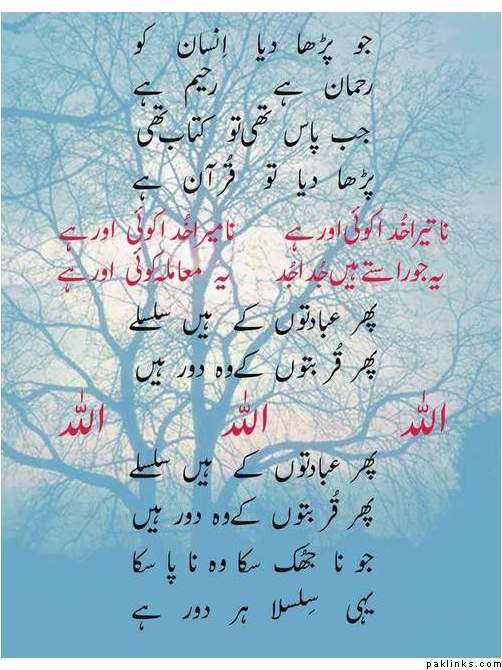 جو پڑھا دیا اِنسان کو
رحمان ہے رحیم ہے
جب پاس تھی تو کتاب تھی
پڑھا دیا تو قُرآن ہے
نا تیرا خُدا کوئی اور ہے نا میرا خُدا کوئی اور ہے
یہ جو راستے ہیں جُدا جُدا یہ معاملہ کوئی اور ہے
پھر عبادتوں کے ہیں سلسلے
پھر قُربتوں کے وہ دور ہیں
اللہ اللہ اللہ
پھر عبادتوں کے ہیں سلسلے
پھر قُربتوں کے وہ دور ہیں
جو نا جُھک سکا وہ نا پا سکا
یہی سِلسلا ہر دور ہے
paklinks.com